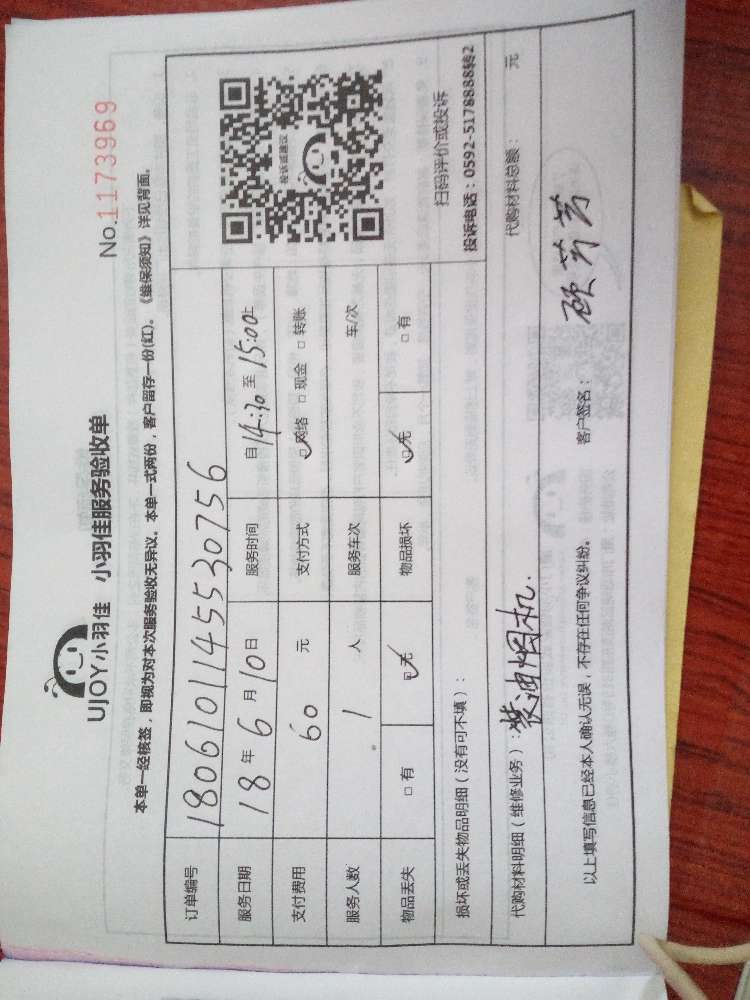 UJOY小羽佳 小羽佳服务验收单
No.1173969
本单一经核签，即视为对本次服务验收无异议。本单一式两份，客户留存一份(红)。《维保须知》详见背面。
订单编号 180610114553075​6
服务日期 18年6月10日 服务时间 自14:30至15:00止
支付费用 60 元 支付方式 ☑网络 □现金 □转账
服务人数 1 人 服务车次 车/次
物品丢失 □有 ☑无 物品损坏 ☑无 □有
投诉或建议
扫码评价或投诉
投诉电话：0592-5178888转2
损坏或丢失物品明细（没有可不填）：
代购材料明细（维修业务）：装油烟机. 代购材料总额： 元
以上填写信息已经本人确认无误，不存在任何争议纠纷。 客户签名：